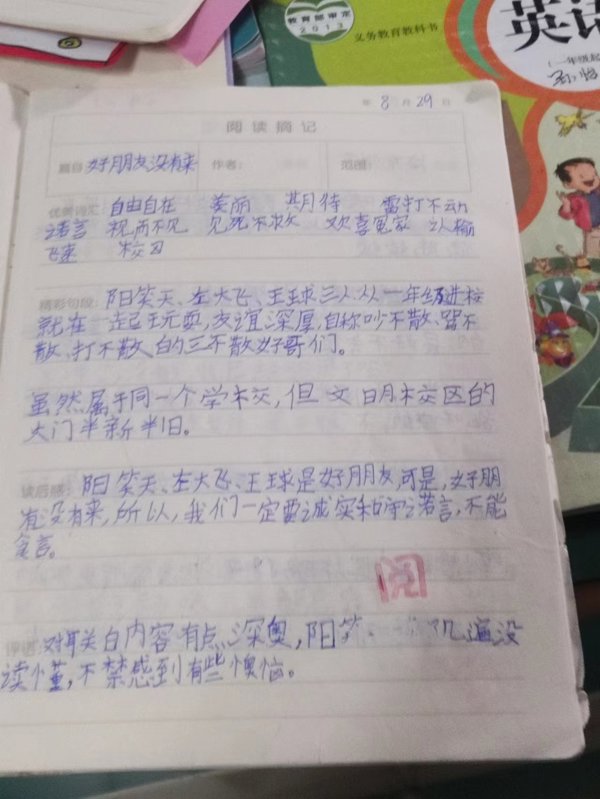 教育部审定
2013
义务教育教科书
英语
(一年级起
年 8 月 29 日
阅读摘记
题目: 好朋友没有来 作者: 范围:
优美词汇: 自由自在 美丽 期待 雷打不动
诺言 视而不见 见死不救 欢喜冤家 认输
飞速 校刃
精彩句段: 阳笑天、左大飞、王球三人从一年级进校
就在一起玩耍,友谊深厚,自称吵不散、骂不
散、打不散的三不散好哥们。
虽然属于同一个学校,但文明校区的
大门半新半旧。
读后感: 阳笑天、左大飞、王球是好朋友,可是,好朋
友没有来,所以,我们一定要诚实和守诺言,不能
食言。
阅
评语: 对联关白内容有点深奥,阳笑 几遍没
读懂,不禁感到有些懊恼。